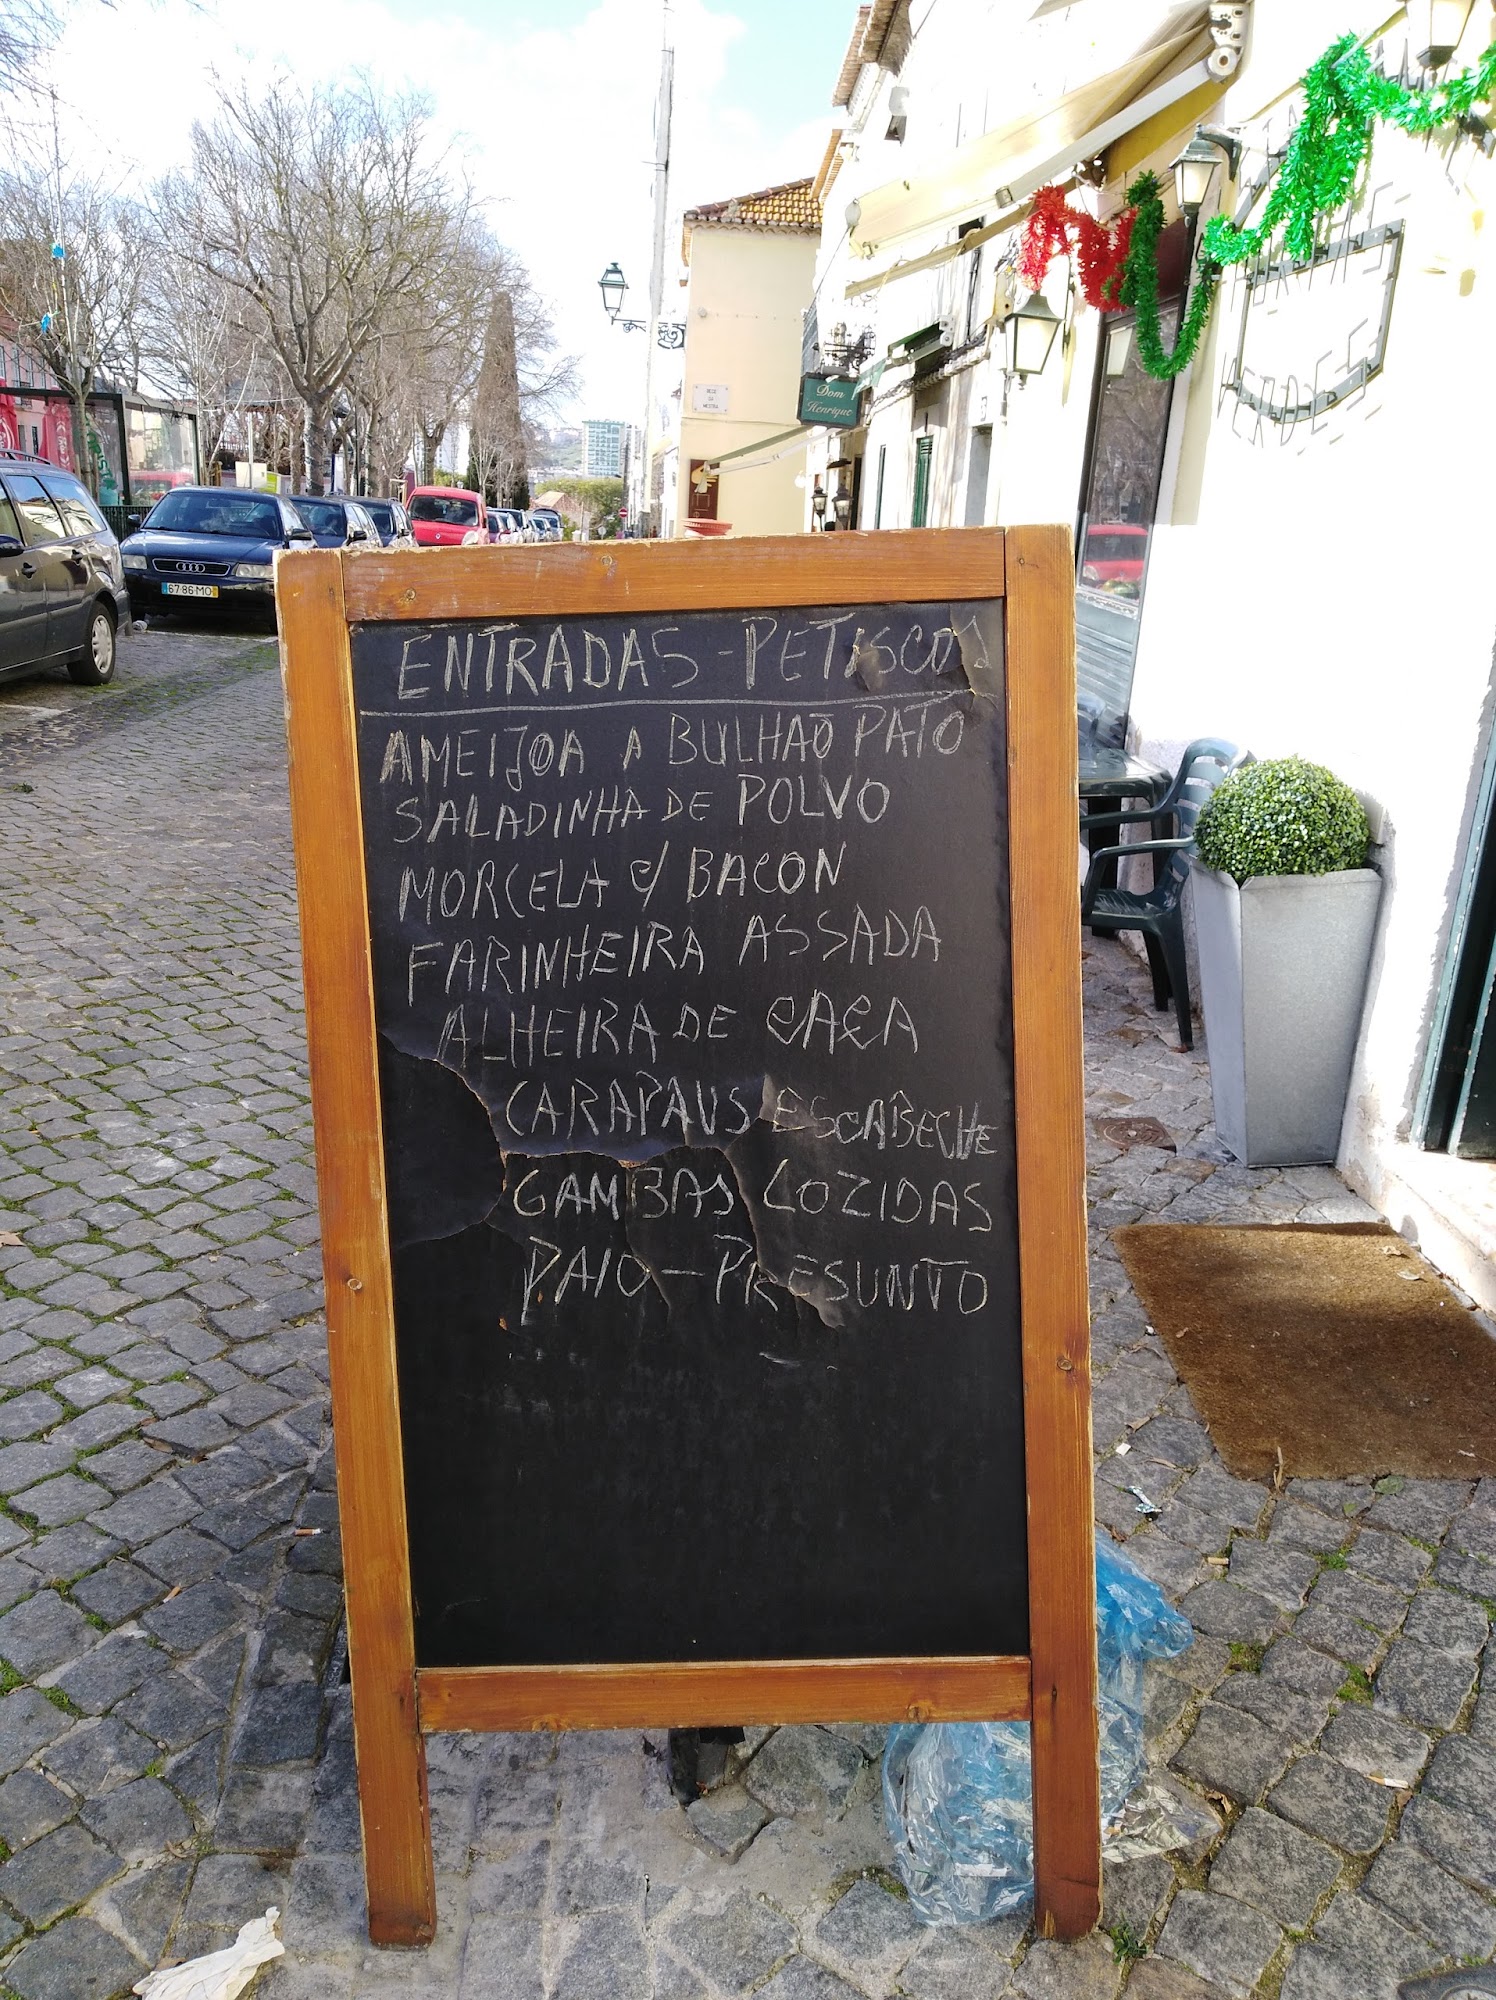 ENTRADAS - PETISCOS
AMEIJOA A BULHAO PATO
SALADINHA DE POLVO
MORCELA C/ BACON
FARINHEIRA ASSADA
ALHEIRA DE CAÇA
CARAPAUS ESCABECHE
GAMBAS COZIDAS
PAIO - PRESUNTO
Dom
Henrique
67·86·MO